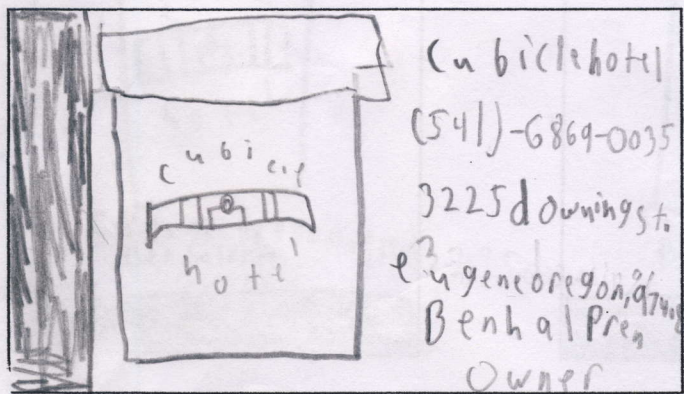 cubicle
hotel
Cubiclehotel
(541)-6869-0035
3225 downing st.
eugene oregon,
Benhal Pren
Owner